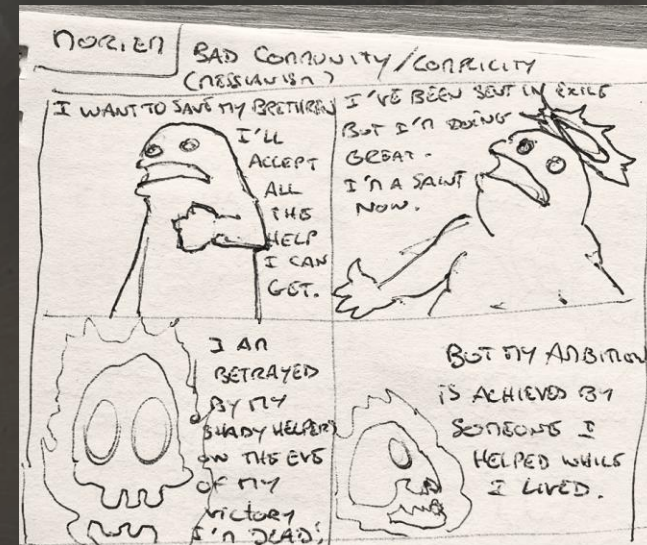 NORIEN
BAD COMMUNITY/COMPLICITY
(MESSIANISM)
I WANT TO SAVE MY BRETHREN
I'LL
ACCEPT
ALL
THE
HELP
I CAN
GET.
I'VE BEEN SENT IN EXILE
BUT I'M DOING
GREAT.
I'M A SAINT
NOW.
I AM
BETRAYED
BY MY
SHADY HELPERS
ON THE EVE
OF MY
VICTORY
I'M DEAD!
BUT MY AMBITION
IS ACHIEVED BY
SOMEONE I
HELPED WHILE
I LIVED.